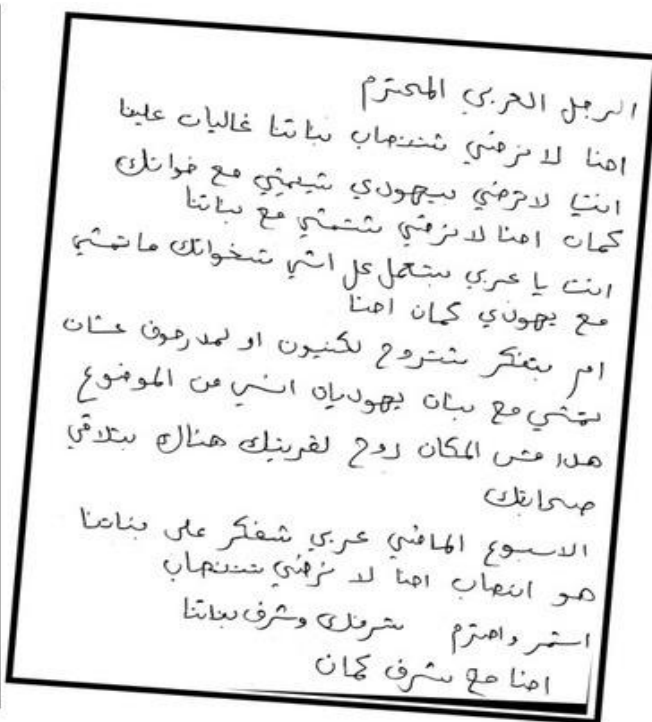 الرجل العربي المحترم
احنا لا نرضي تنصاب بناتنا غاليات علينا
انت لا ترضي بيهودي تيمتي مع خواتك
كمان احنا لا نرضي تتمتي مع بناتنا
انت يا عربي بتعمل عل اشي تخواتك ماتمشي
مع يهودي كمان احنا
ام بتفكر تتروح لكنيون او لمدرحوف عشان
تمشي مع بنات يهوديات انسى من الموضوع
هدا مش المكان روح لقريتك هناك بتلاقي
صحابتك
الاسبوع الماضي عربي شفكر على بناتنا
هو انصاب احنا لا نرضي تنصاب
استمر واحترم شرفك وشرف بناتنا
احنا مع شرف كمان